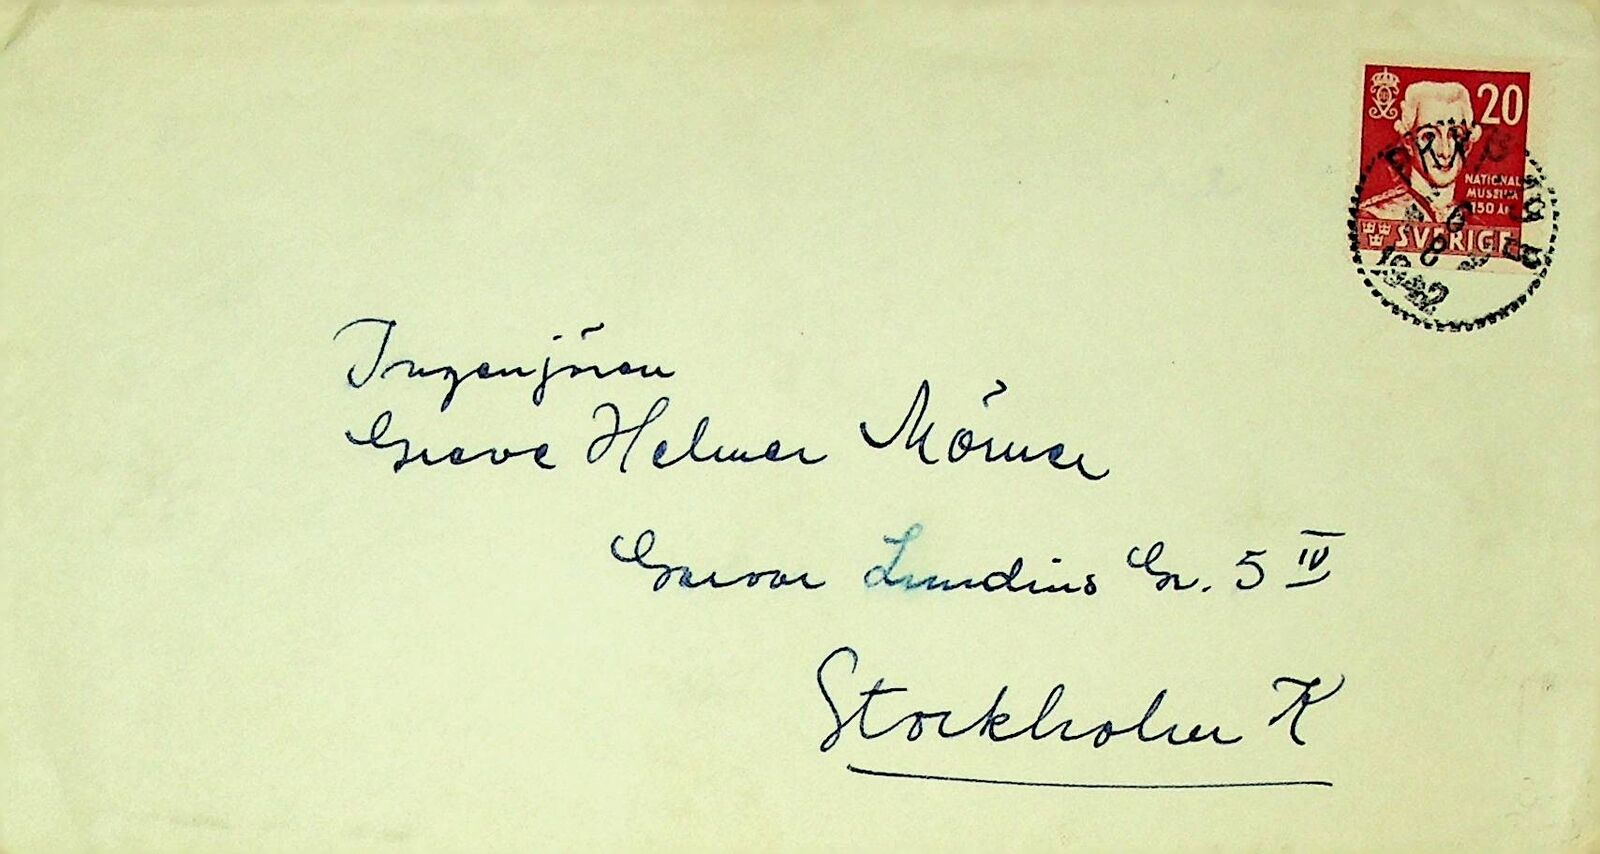 20
NATIONAL
MUSEUM
150 ÅR
SVERIGE
6
8
1942
Ingenjören
Greve Helmer Mörner
Garvar Lundins Gr. 5 IV
Stockholm K